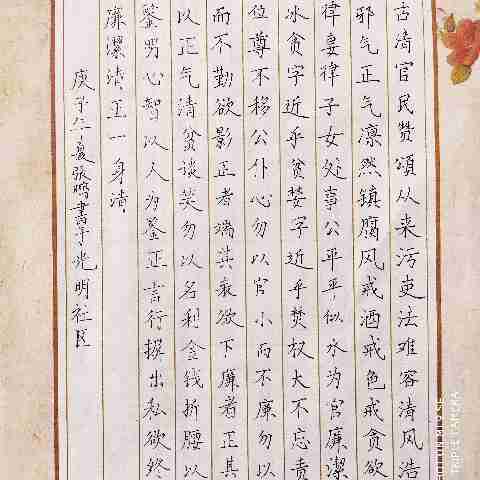 古清官民赞頌从来污吏法难容清风浩
邪气正气凛然镇腐风戒酒戒色戒贪欲
律妻律子女处事公平平似水为官廉潔
冰贪字近乎贫婪字近乎焚权大不忘责
位尊不移公仆心勿以官小而不廉勿以
而不勤欲影正者端其表欲下廉者正其
以正气清贫谈笑勿以名利金钱折腰以
鉴明心智以人为鉴正言行摒出私欲终
廉潔清正一身清
庚子年夏张鸣書于光明社区
TRIPLE CAMERA